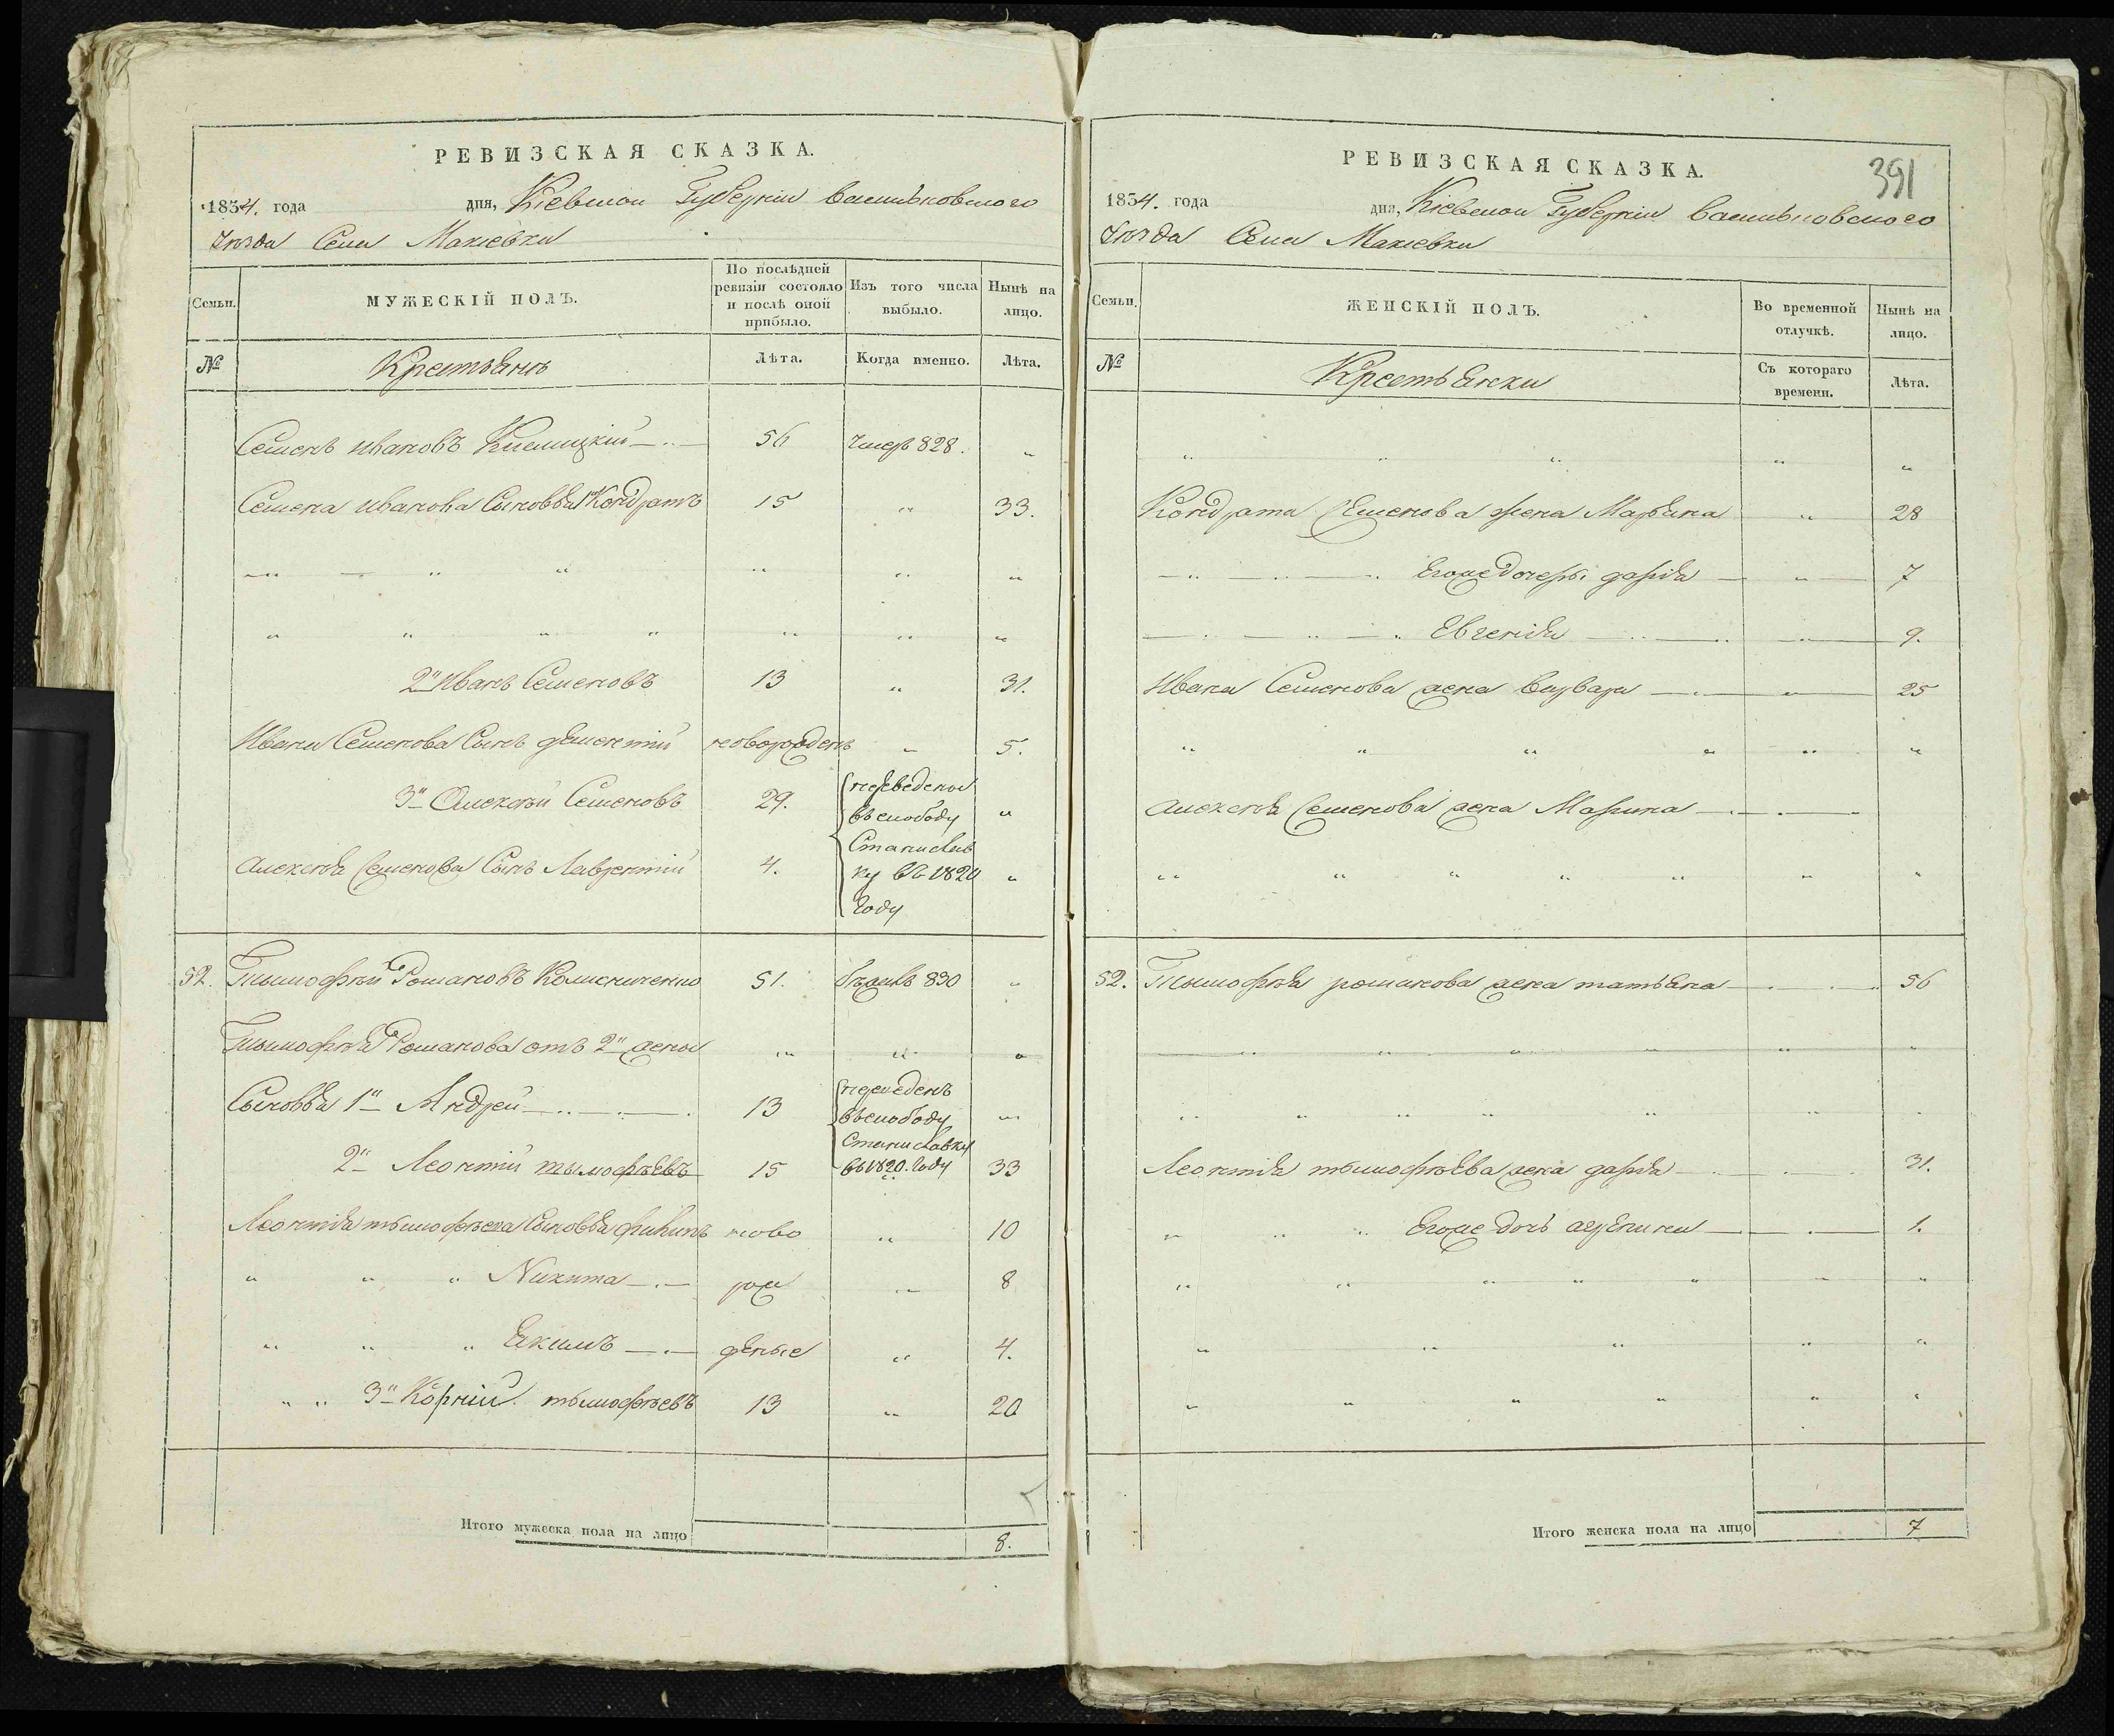 РЕВИЗСКАЯ СКАЗКА.
1834. года дня, Кіевской Губерніи васильковского
Уѣзда Села Макіевки
Семьи. МУЖЕСКІЙ ПОЛЪ. По послѣдней ревизіи состояло и послѣ оной прибыло. Изъ того числа выбыло. Нынѣ на лицо.
№ Крестьянъ Лѣта. Когда именно. Лѣта.
Семенъ ивановъ 56 Умеръ 828. „
Семена иванова Сыновья 1й Кондратъ 15 „ 33.
2й Иванъ Семеновъ 13 „ 31.
Ивана Семенова Сынъ новорожденъ „ 5.
3й Алексѣй Семеновъ 29. переведены „
въ слободу
Станислав
Алексѣя Семенова Сынъ Лаврентий 4. ку въ 1820 „
Году
52. Тымофѣй Романовъ Колисниченко 51. бѣжив 830 „
Тымофѣя Романова отъ 2й жены „ „ „
Сыновья 1й Андрей 13 переведенъ „
въ слободу
Станиславку
2й Леонтий тымофѣевъ 15 въ 1820. Году 33
Леонтия тымофѣева Сыновья филипъ ново „ 10
„ „ „ Никита рож „ 8
„ „ „ Якимъ деные „ 4.
„ „ 3й Корнiй тымофѣевъ 13 „ 20
Итого мужеска пола на лицо 8.
РЕВИЗСКАЯ СКАЗКА. 391
1834. года дня, Кіевской Губерніи васильковского
Уѣзда Села Макіевки
Семьи. ЖЕНСКІЙ ПОЛЪ. Во временной отлучкѣ. Нынѣ на лицо.
№ Крестьянки Съ котораго времени. Лѣта.
Кондрата Семенова жена Марьяна „ 28
Егоже дочеры дария „ 7
Евгения „ 9.
Ивана Семенова жена варвара „ 25
алексѣя Семенова жена Марина
52. Тымофѣя романова жена татьяна 56
Леонтия тымофѣева жена дария 31.
Егоже дочь 1.
Итого женска пола на лицо 7